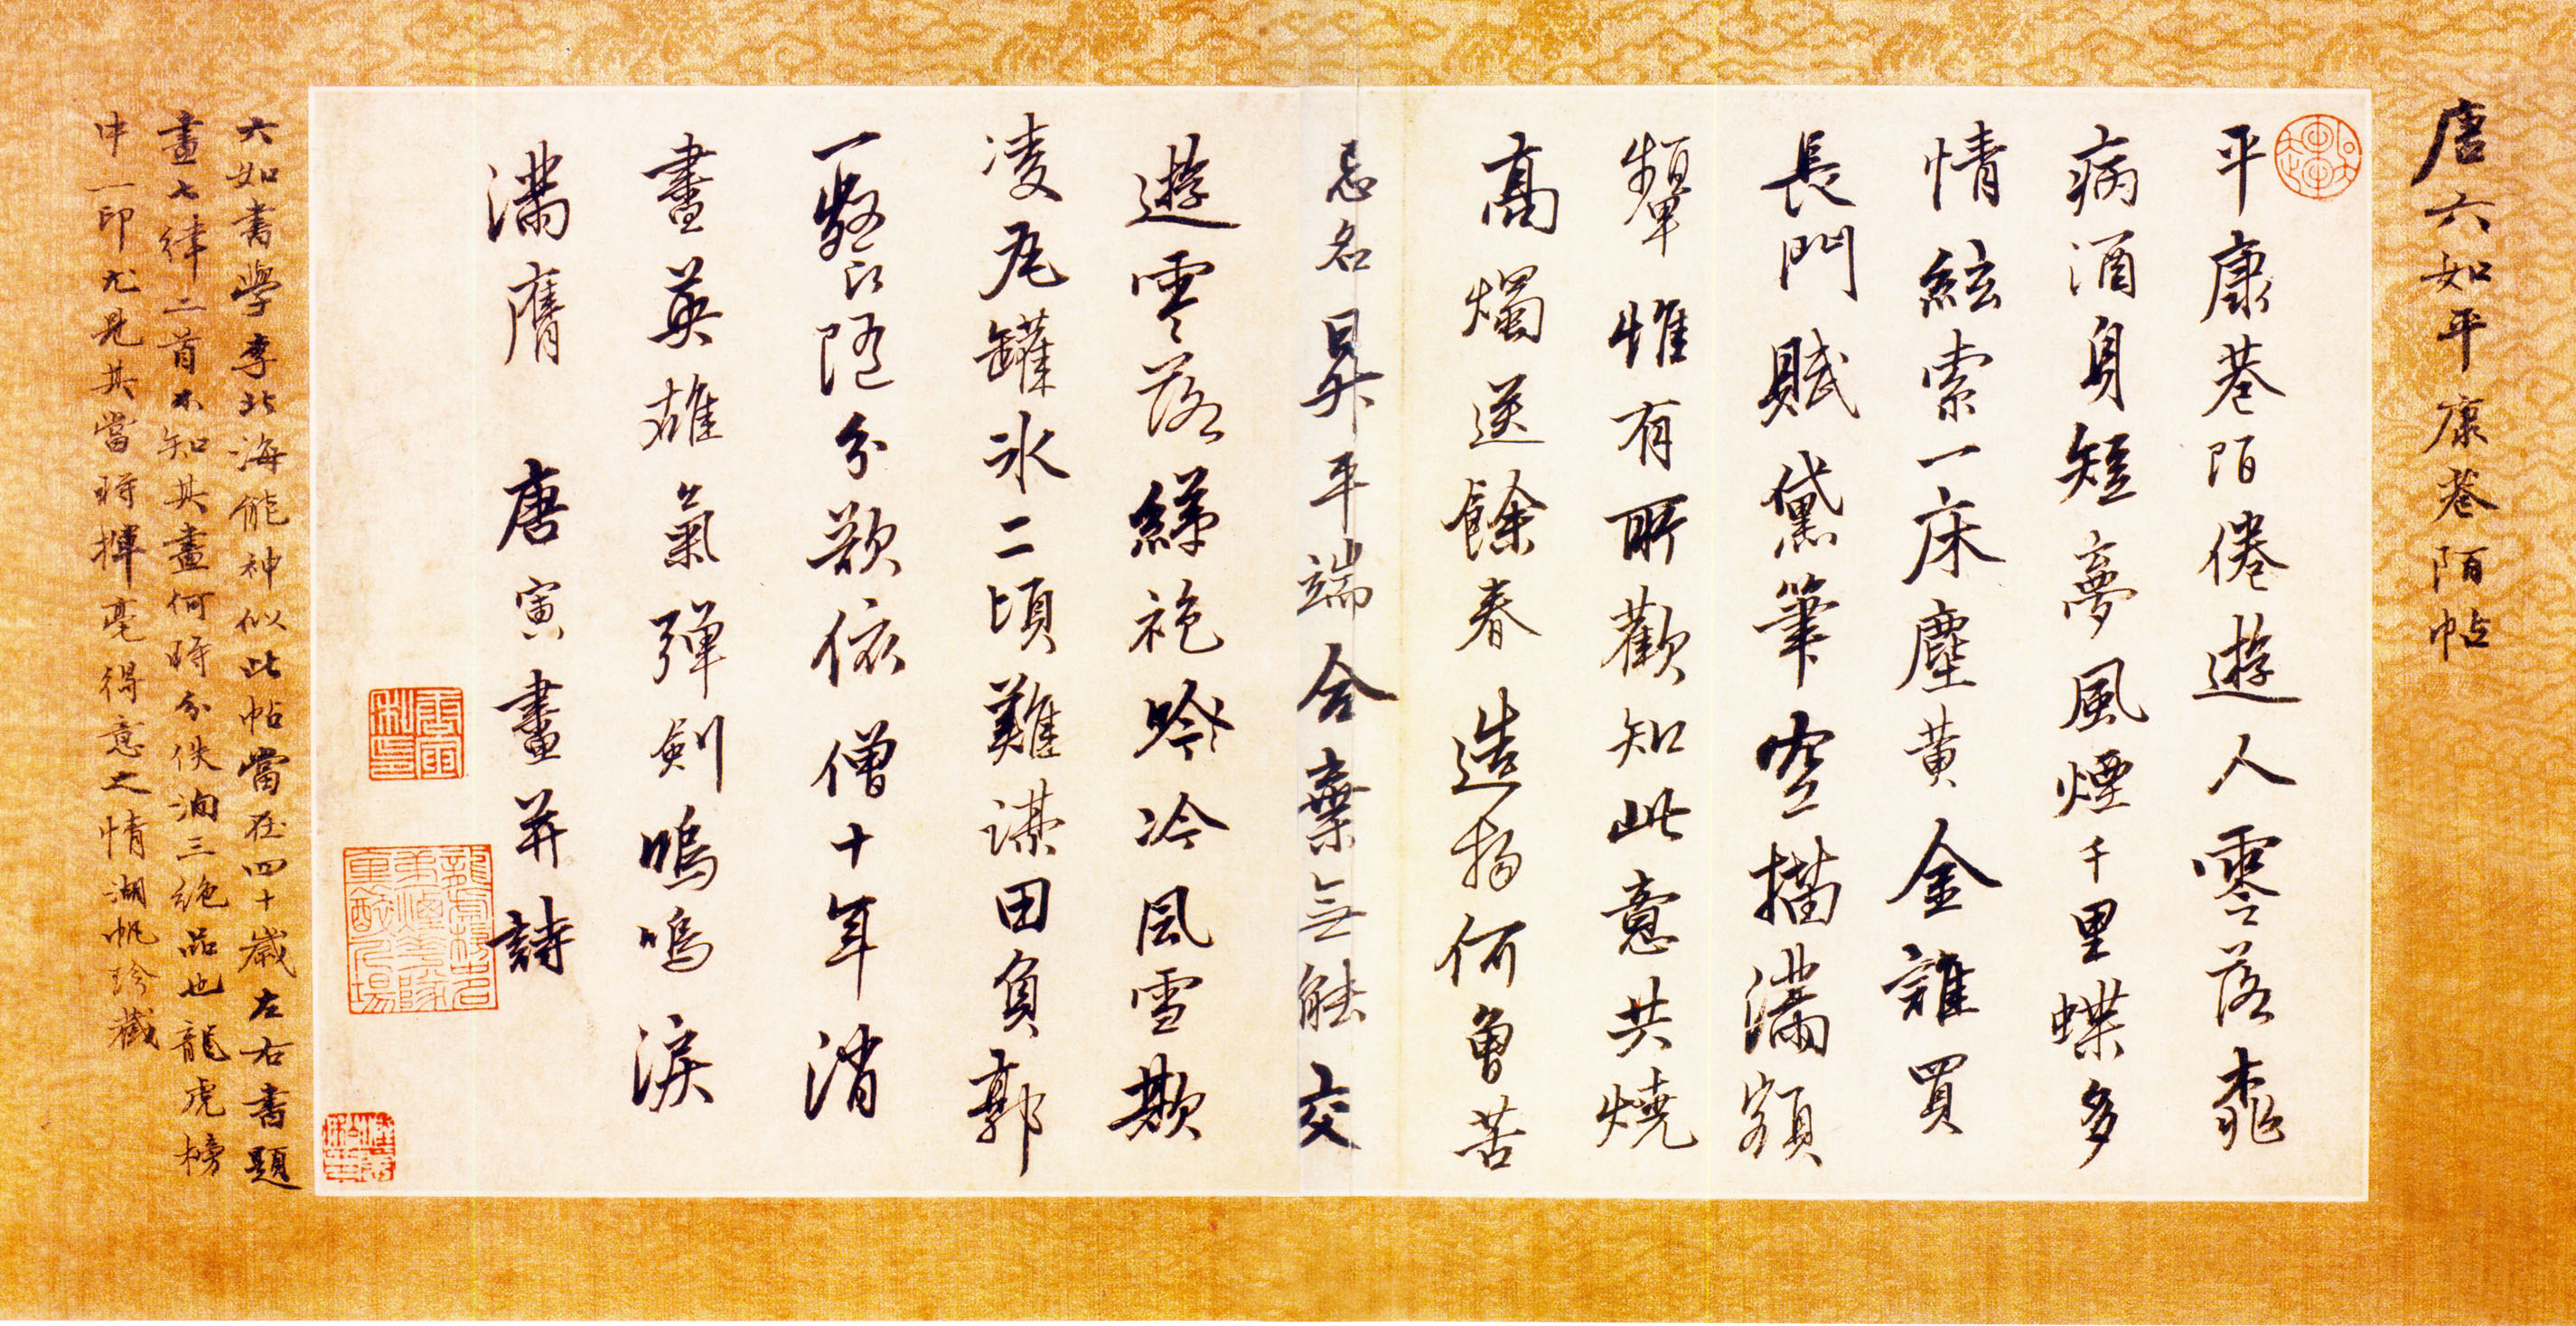 唐六如平康巷陌帖
平康巷陌倦遊人零落桃
病酒身短夢風煙千里蝶多
情絃索一床塵黃金誰買
長門賦黛筆空描滿額
顰惟有所歡知此意共燒
高燭送餘春 造物何曾苦
忌名昇平端合棄無能交
遊零落綈袍吟冷風雪欺
凌瓦罐冰二頃難謀田負郭
一餐隨分欲依僧十年消
盡英雄氣彈劍嗚嗚淚
滿膺 唐寅畫并詩
六如書學李北海能神似此帖當在四十歲左右書題
畫七律二首不知其畫何時分佚洵三絕品也龍虎榜
中一印尤見其當時揮毫得意之情湖帆珍藏